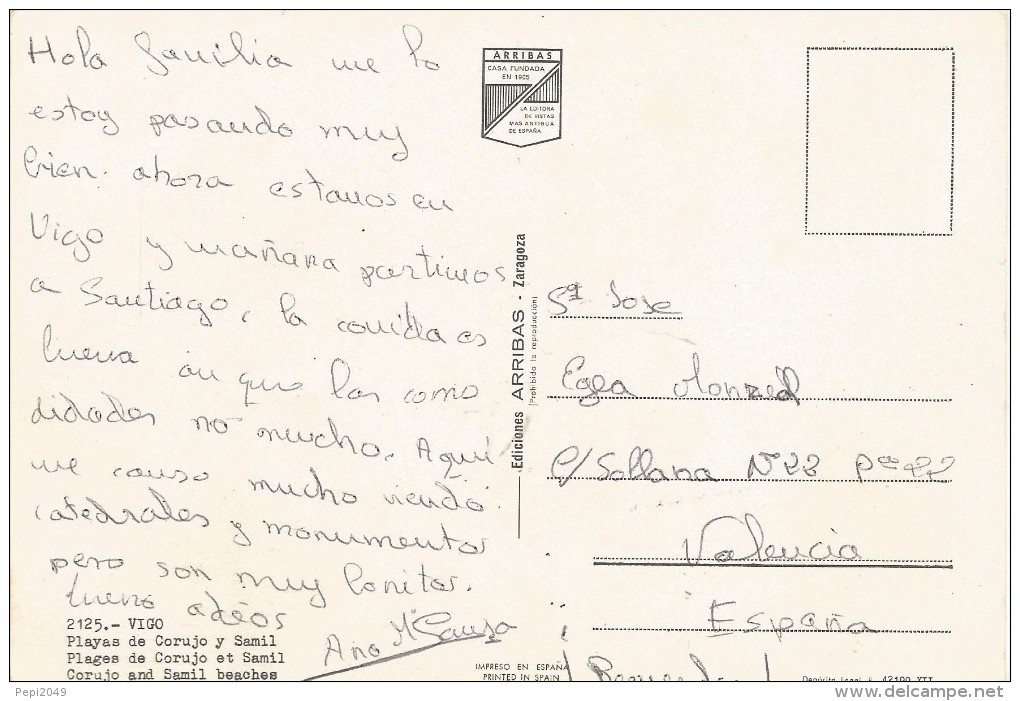 Hola familia me lo
estoy pasando muy
bien. ahora estamos en
Vigo y mañana partimos
a Santiago, la comida es
buena aunque las como
didades no mucho. Aquí
me canso mucho viendo
catedrales y monumentos
pero son muy bonitos.
bueno adéos
Ana Mª
2125.- VIGO
Playas de Corujo y Samil
Plages de Corujo et Samil
Corujo and Samil beaches
ARRIBAS
CASA FUNDADA
EN 1905
LA EDITORA
DE VISTAS
MAS ANTIGUA
DE ESPAÑA
Ediciones ARRIBAS - Zaragoza
(Prohibida la reproducción)
Jose
Egea
C/ Sollana Nº 23
Valencia
España
IMPRESO EN ESPAÑA
PRINTED IN SPAIN
¡Recuerdos!
Depósito Legal
Pepi2049
www.delcampe.net